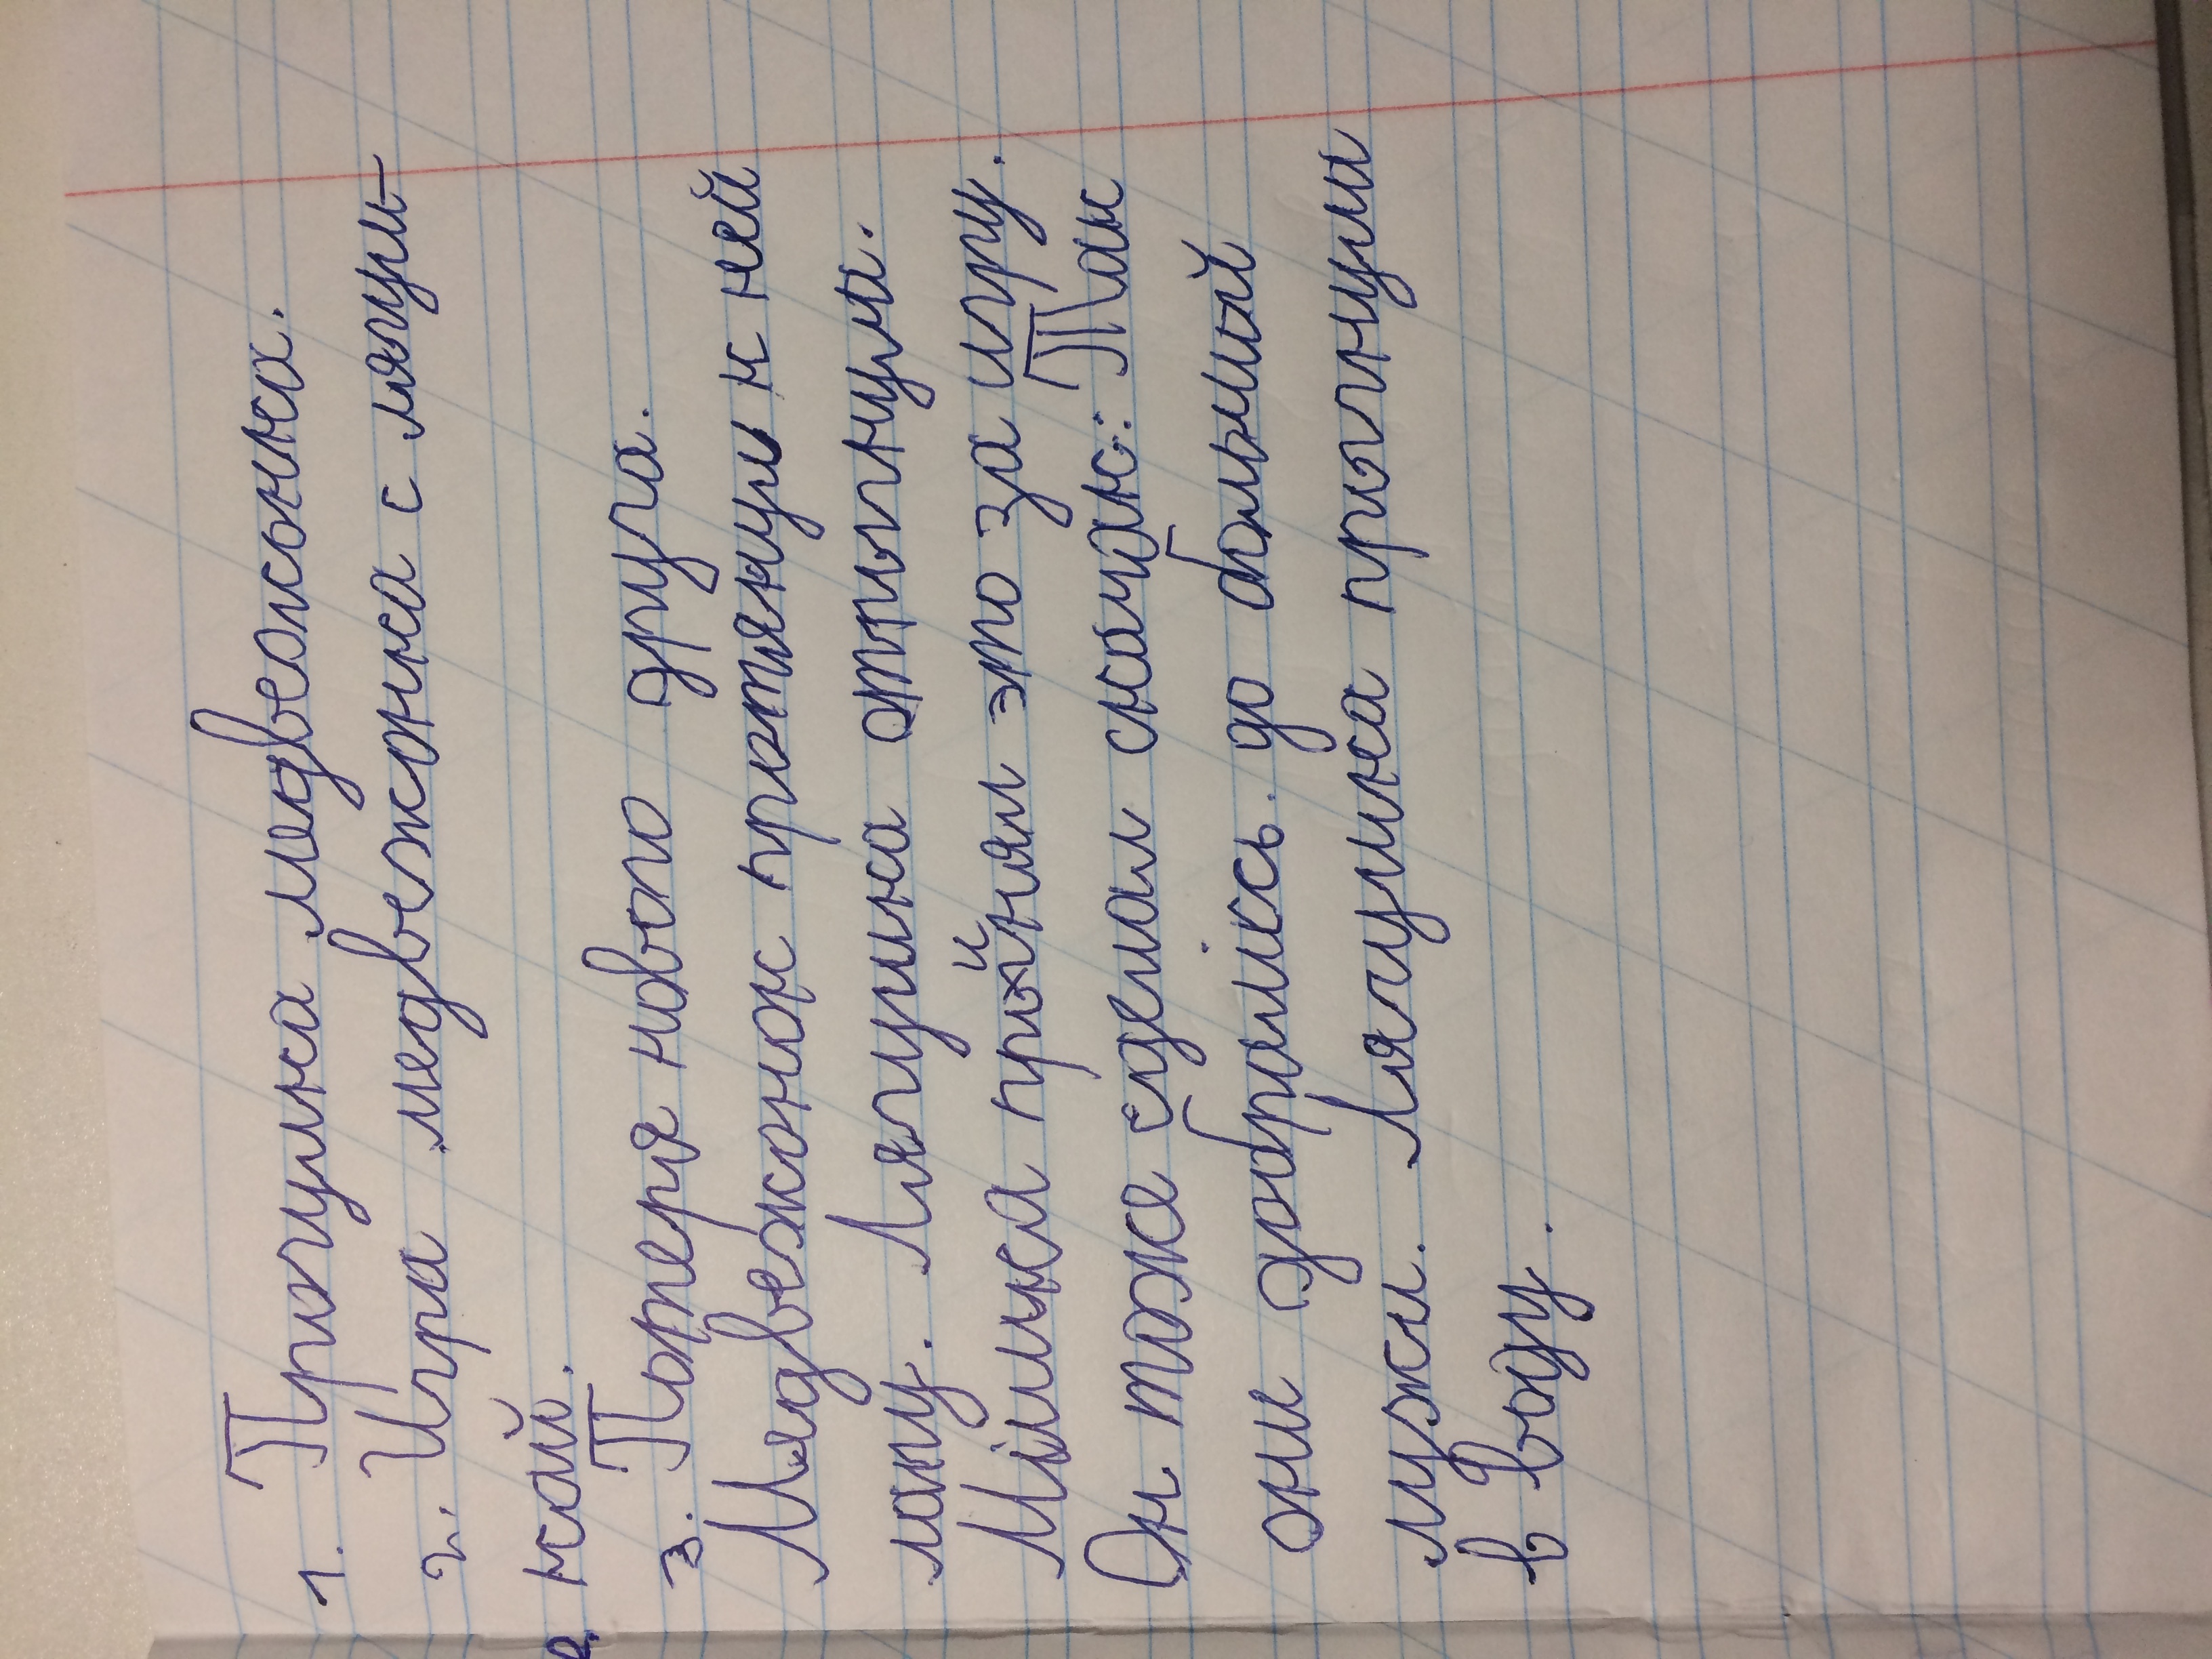 1. Прогулка медвежонка.
2. Игра медвежонка с лягуш-
кай.
3. Потеря нового друга.
Мядвежонок протянул к ней
лапу. Лягушка отпыгнула.
Мiшка принял это за игру.
Он тоже сделал скачок. Так
они добралiсь до большой
лужи. Лягушка прыгнули
в воду.